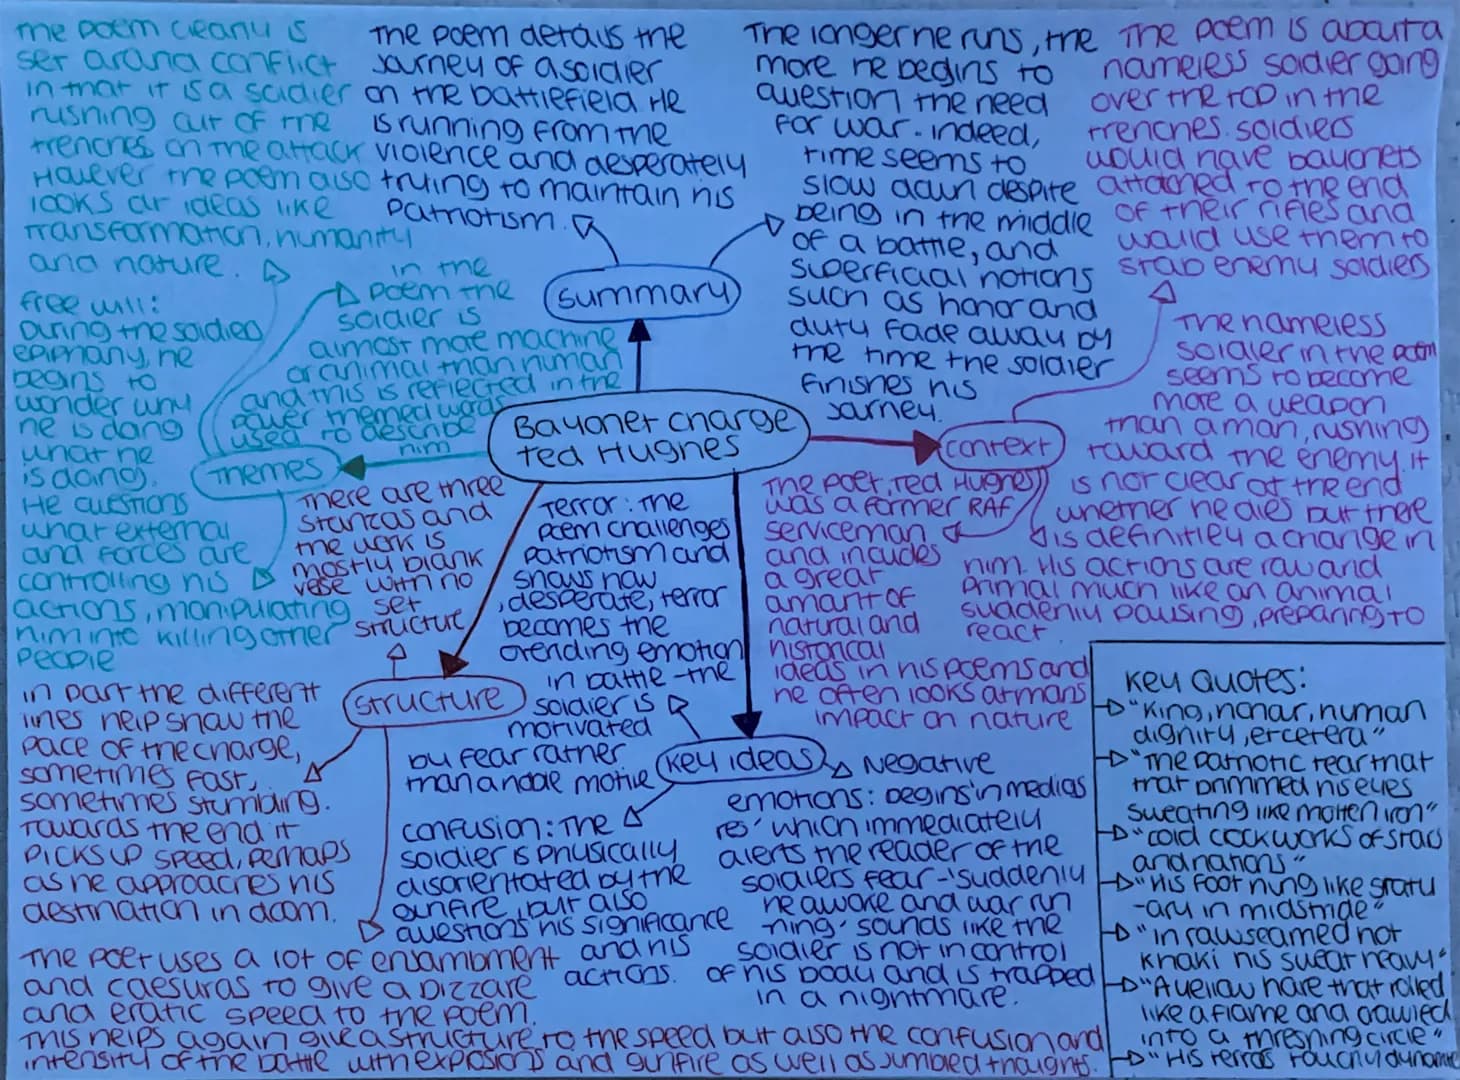 The poem clearly is
set around conflict
in that it is a soldier
rushing out of the
trenches on the attack
However the poem also
looks at ideas like
transformation, humanity
and nature.
The poem details the
journey of a soldier
on the battlefield He
is running from the
violence and desperately
trying to maintain his
Patriotism.
The longer he runs, the
more he begins to
question the need
for war. indeed,
time seems to
slow down despite
being in the middle
of a battle, and
superficial notions
such as honor and
duty fade away by
the time the soldier
finishes his
journey.
The poem is about a
nameless soldier going
over the top in the
trenches. soldiers
would have bayonets
attached to the end
of their rifles and
would use them to
stab enemy soldiers
summary
in the
poem the
soldier is
almost more machine
or animal than human
and this is reflected in the
power themed words
used to describe
him
free will:
During the soldied
epimany, he
begins to
wonder why
he is doing
what he
is doing.
He questions
what external
and forces are
controlling his
actions, manipulating
him into killing other
people
Themes
Bayonet charge
Ted Hughes
context
The nameless
soldier in the poem
seems to become
more a weapon
than a man, rushing
toward the enemy. it
is not clear at the end
whether he dies but there
is definitley a change in
him. His actions are raw and
primal much like an animal
suddenly pausing, preparing to
react.
The poet, Ted Hughes
was a former RAF
serviceman
and includes
a great
amount of
natural and
historical
ideas in his poems and
he often looks at mans
impact on nature
There are three
stanzas and
the work is
mostly blank
vese with no
set
structure
structure
in part the different
lines help show the
pace of the charge,
sometimes fast,
sometimes stumbling.
Towards the end it
picks up speed, perhaps
as he approaches his
destination in doom.
The poet uses a lot of enjambment
and caesuras to give a bizzare
and eratic speed to the poem.
This helps again give a structure to the speed but also the confusion and
intensity of the battle with explosions and gunfire as well as jumbled thoughts.
Terror: the
poem challenges
patriotism and
shows how
, desperate, terror
becomes the
orending emotion
in battle - the
soldier is
motivated
by fear rather
than a noble motive
key ideas
confusion: The
soldier is physically
disorientated by the
gunfire, but also
questions his significance
and his
actions.
Negative
emotions: begins 'in medias
res' which immediately
alerts the reader of the
soldiers fear - 'suddenly
he awoke and war run
ning' sounds like the
soldier is not in control
of his body and is trapped
in a nightmare.
Key Quotes:
"King, honor, human
dignity, etcetera"
"The patriotic tear that
that brimmed his eyes
sweating like molten iron"
"cold clockworks of stars
and nations"
"His foot hung like statu
-ary in midstride"
"in raw seamed hot
khaki his sweat heavy"
"A yellow hare that rolled
like a flame and crawled
into a threshing circle"
"His terrors touchy dynamite